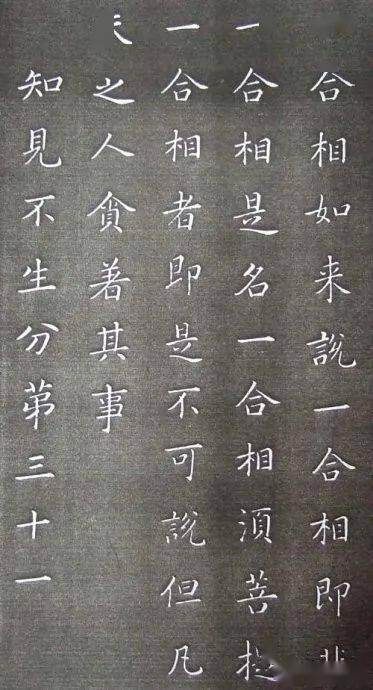 合相如来說一合相即非
一合相是名一合相湏菩提
一合相者即是不可說但凡
夫之人貪著其事
知見不生分苐三十一